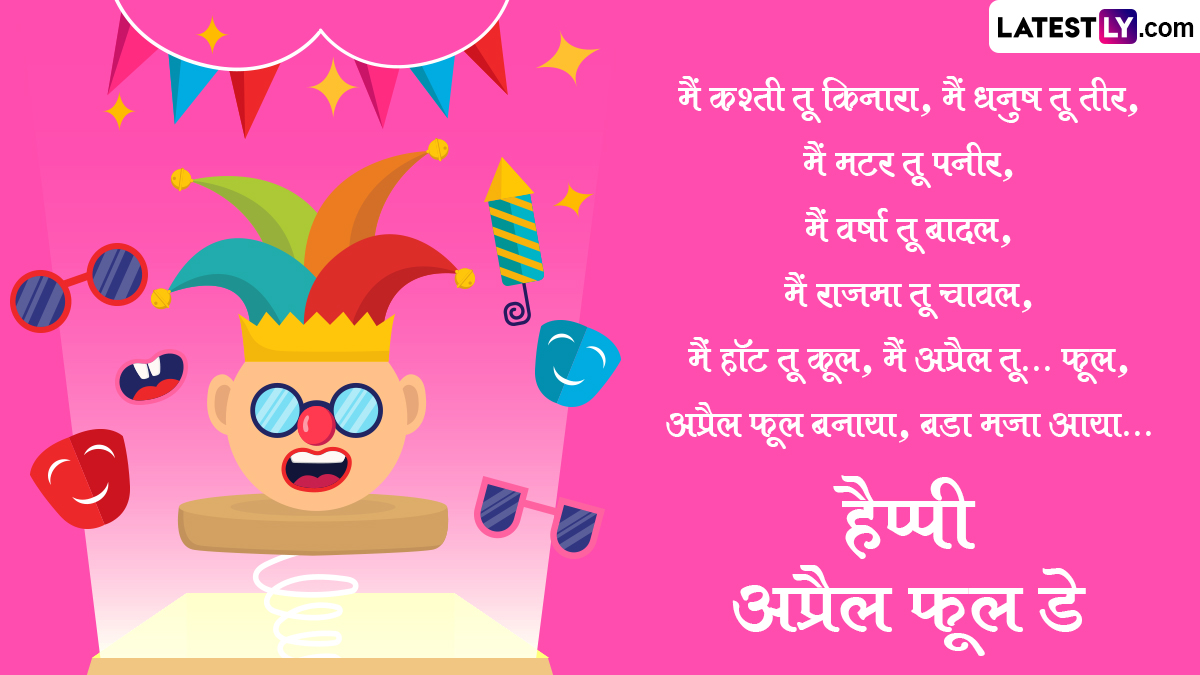 LATESTLY.com
मैं कश्ती तू किनारा, मैं धनुष तू तीर,
मैं मटर तू पनीर,
मैं वर्षा तू बादल,
मैं राजमा तू चावल,
मैं हॉट तू कूल, मैं अप्रैल तू... फूल,
अप्रैल फूल बनाया, बडा मजा आया...
हैप्पी
अप्रैल फूल डे